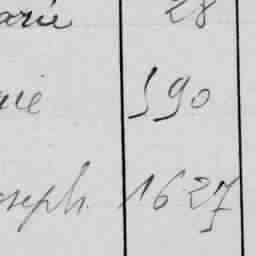 arie 28
rie 590
oseph. 1627